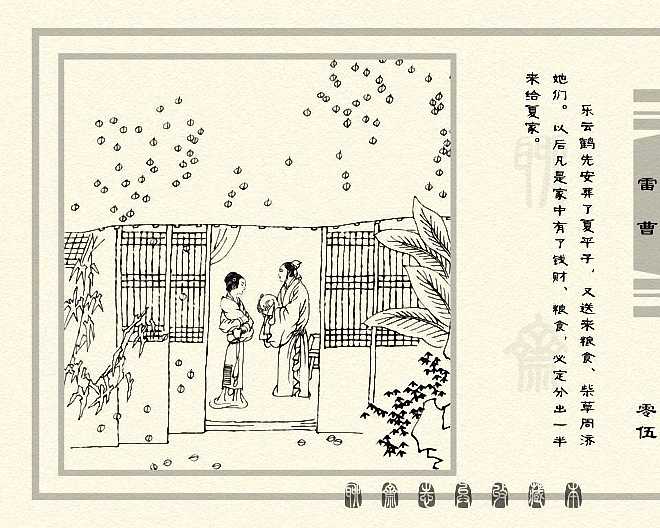 乐云鹤先安葬了夏平子，又送来粮食、柴草周济
她们。以后凡是家中有了钱财、粮食，必定分出一半
来给夏家。
雷曹
零伍